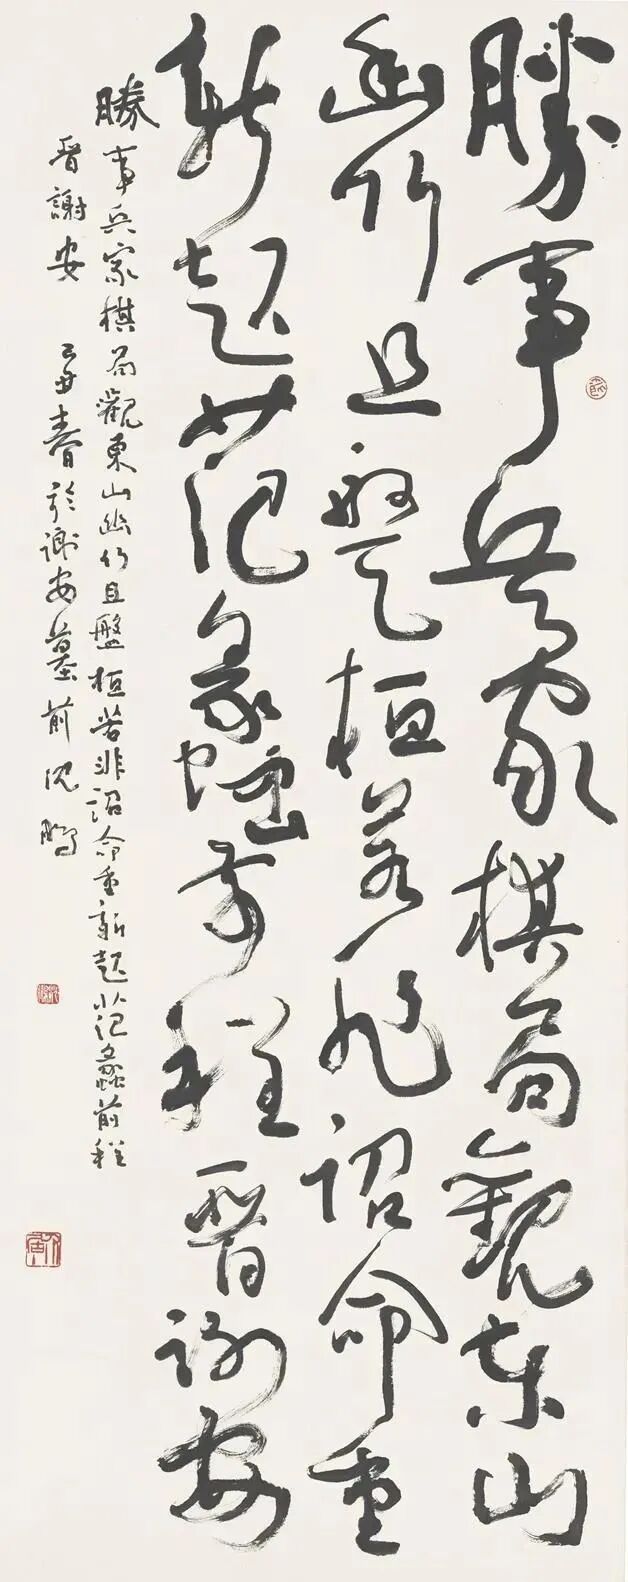 勝事兵家棋局觀東山
幽竹且盤桓若非詔命重
新起范蠡前程晋謝安
勝事兵家棋局觀東山幽竹且盤桓若非詔命重新起范蠡前程
晋謝安 己丑春於謝安墓前沈鵬